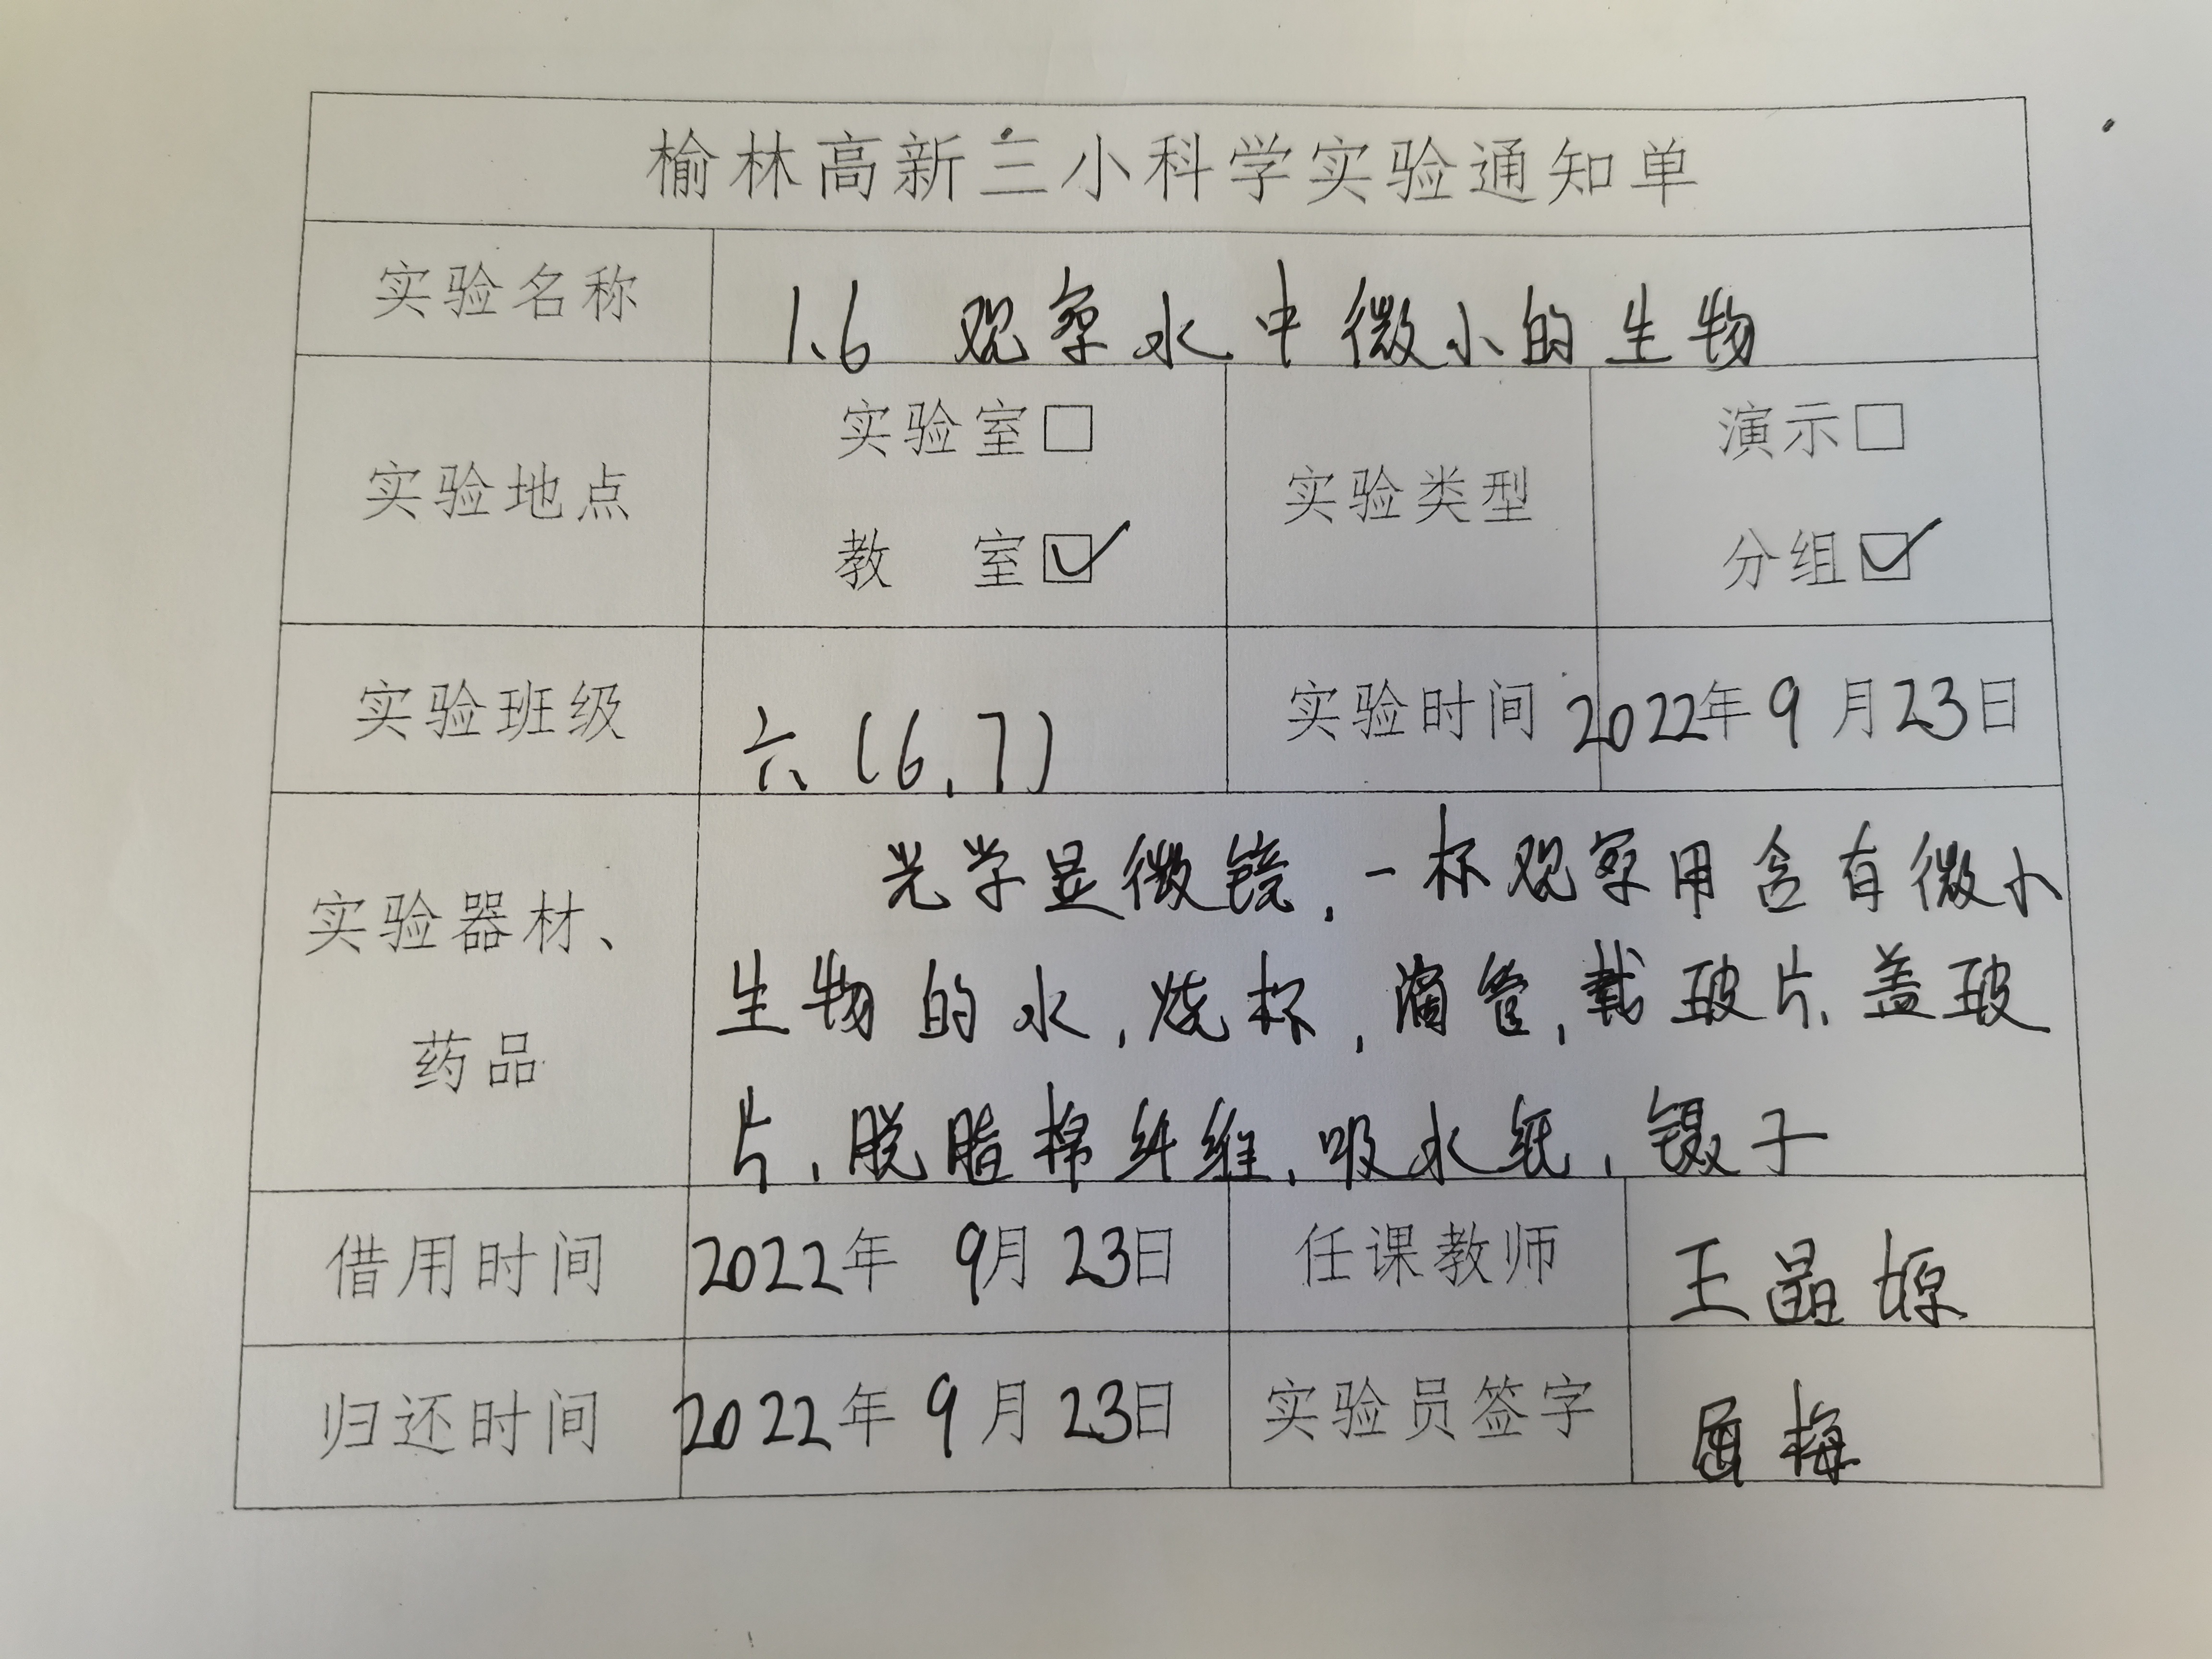 榆林高新三小科学实验通知单
实验名称 1.6 观察水中微小的生物
实验室□ 演示□
实验地点 实验类型
教 室☑ 分组☑
实验班级 六(6,7) 实验时间 2022年9月23日
光学显微镜,一杯观察用含有微小
实验器材、
生物的水,烧杯,滴管,载玻片、盖玻
药品
片,脱脂棉纤维,吸水纸,镊子
借用时间 2022年 9月23日 任课教师 王晶嫄
归还时间 2022年9月23日 实验员签字 屈梅